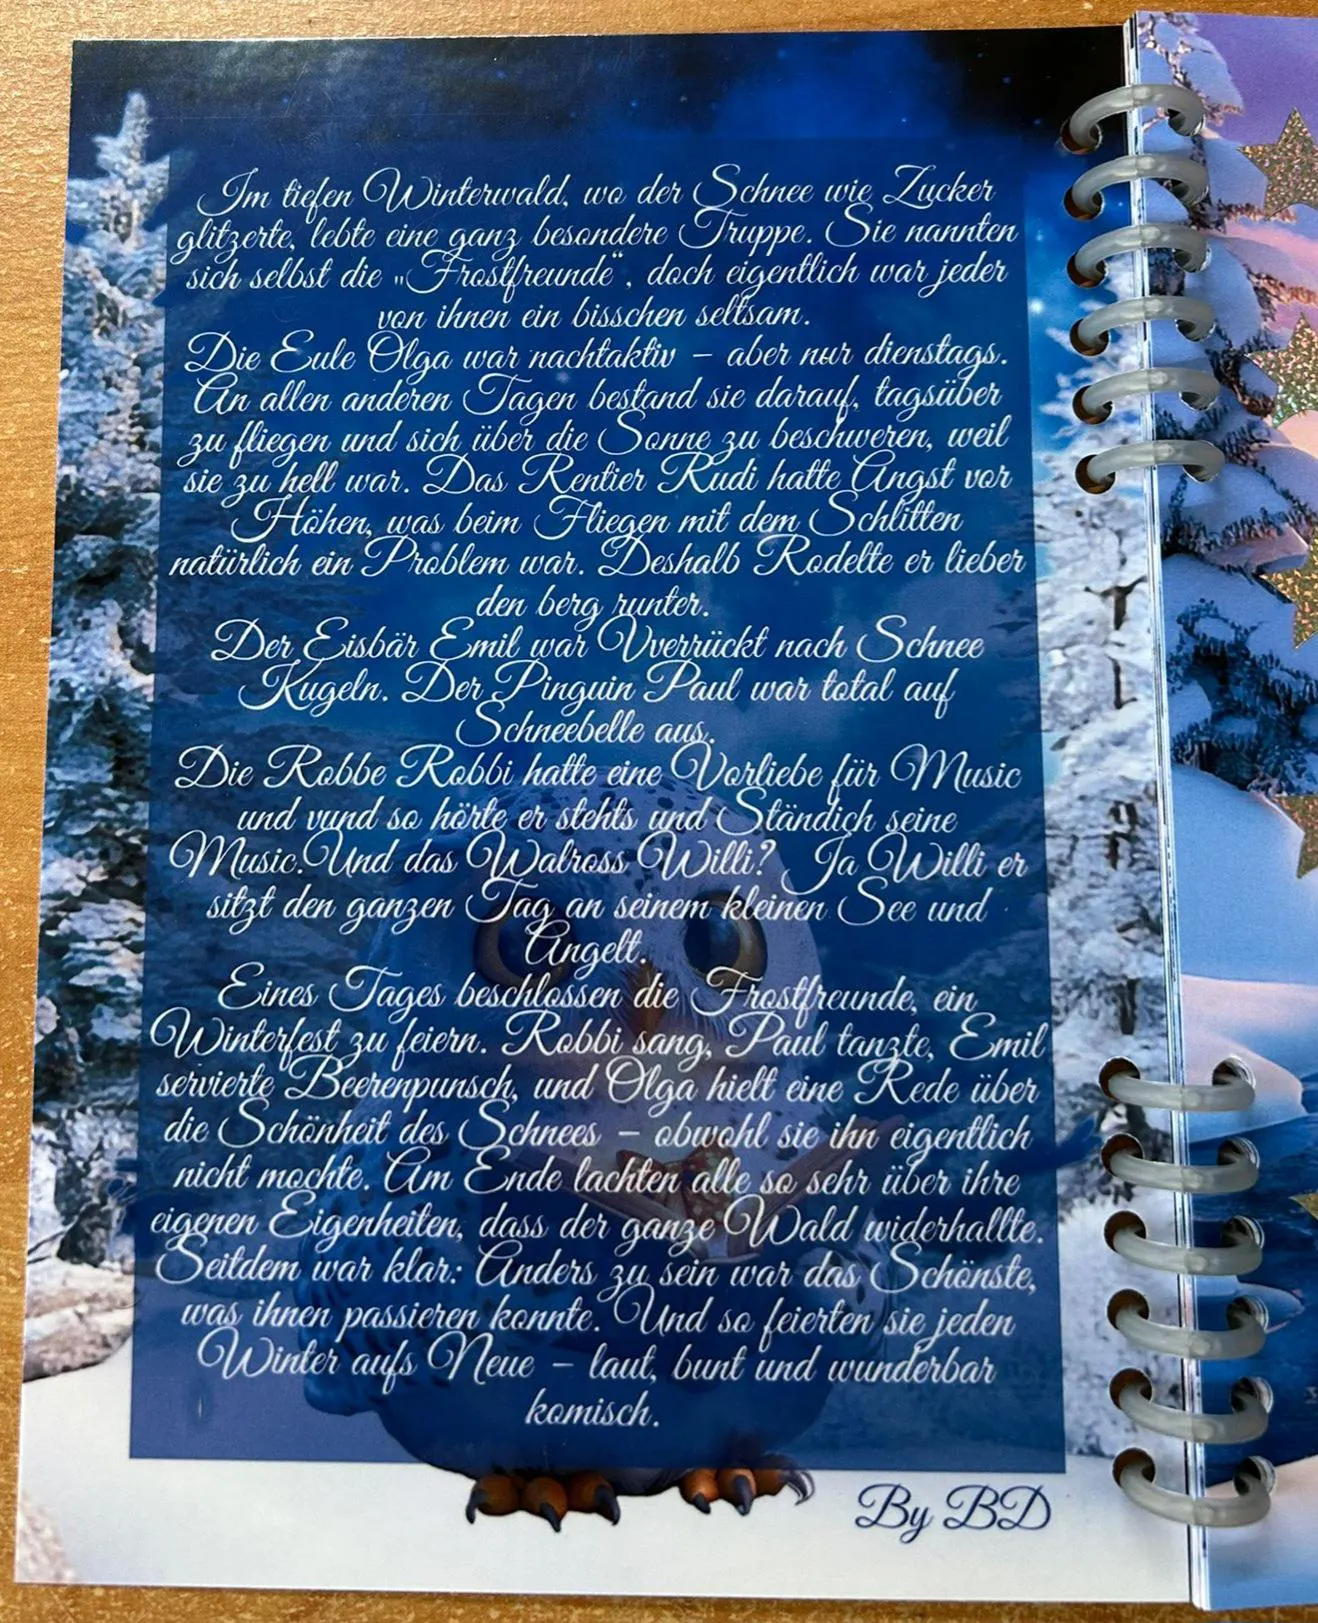 Im tiefen Winterwald, wo der Schnee wie Zucker
glitzerte, lebte eine ganz besondere Truppe. Sie nannten
sich selbst die „Frostfreunde“, doch eigentlich war jeder
von ihnen ein bisschen seltsam.
Die Eule Olga war nachtaktiv – aber nur dienstags.
An allen anderen Tagen bestand sie darauf, tagsüber
zu fliegen und sich über die Sonne zu beschweren, weil
sie zu hell war. Das Rentier Rudi hatte Angst vor
Höhen, was beim Fliegen mit dem Schlitten
natürlich ein Problem war. Deshalb Rodelte er lieber
den berg runter.
Der Eisbär Emil war Vverrückt nach Schnee
Kugeln. Der Pinguin Paul war total auf
Schneebelle aus.
Die Robbe Robbi hatte eine Vorliebe für Music
und vund so hörte er stehts und Ständich seine
Music.Und das Walross Willi? Ja Willi er
sitzt den ganzen Tag an seinem kleinen See und
Angelt.
Eines Tages beschlossen die Frostfreunde, ein
Winterfest zu feiern. Robbi sang, Paul tanzte, Emil
servierte Beerenpunsch, und Olga hielt eine Rede über
die Schönheit des Schnees – obwohl sie ihn eigentlich
nicht mochte. Am Ende lachten alle so sehr über ihre
eigenen Eigenheiten, dass der ganze Wald widerhallte.
Seitdem war klar: Anders zu sein war das Schönste,
was ihnen passieren konnte. Und so feierten sie jeden
Winter aufs Neue – laut, bunt und wunderbar
komisch.
By BD